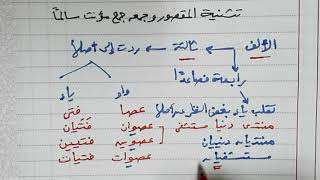 تثنية المقصور وجمعه جمع مؤنث سالمًا
الألف ثالثة ردت إلى أصلها
رابعة فصاعدًا
واو ياء
تقلب ياء بغض النظر عن أصلها
عصا فتى
منتدى دنيا مستشفى
عصوان فتيان
منتديان دنييان
عصوين فتيين
مستشفيان
عصوات فتيات